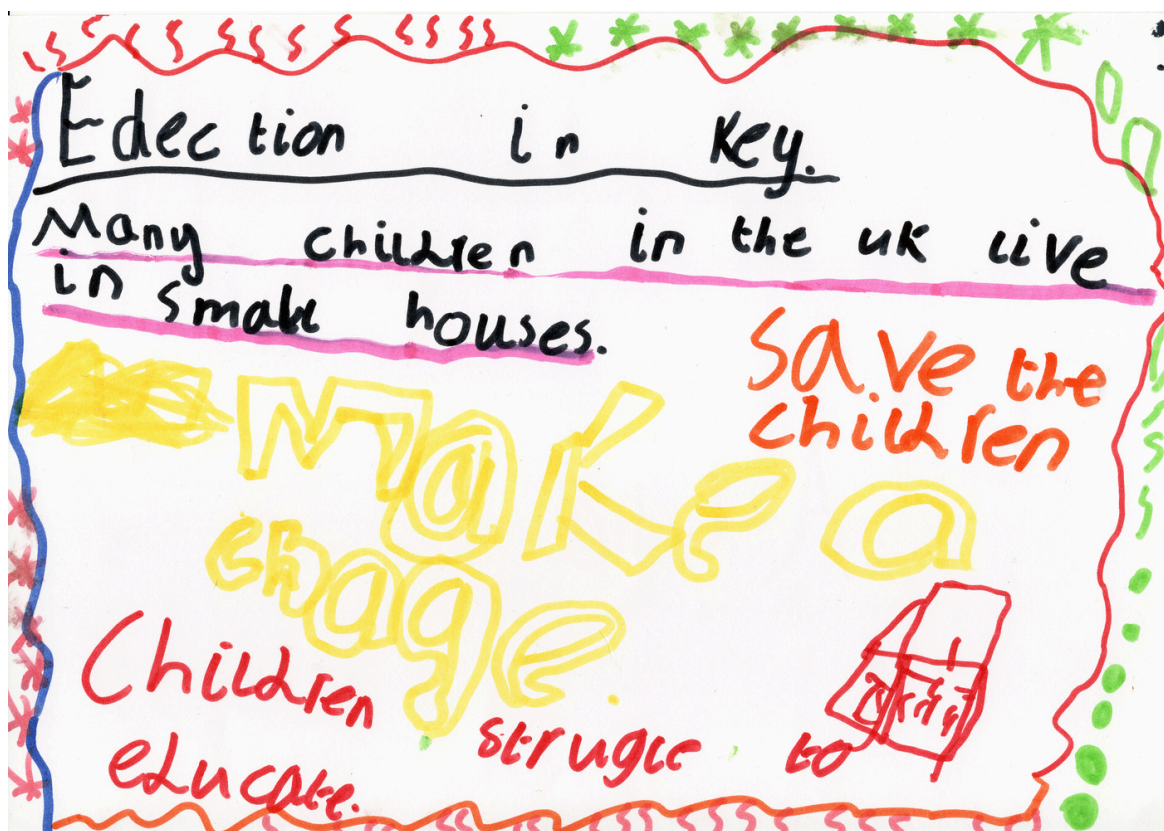 Edection in Key.
Many children in the uk live
in small houses.
Save the
children
Make a
chage.
Children struglc to
educate.